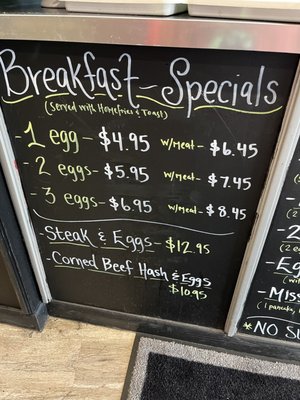 Breakfast - Specials
(Served with Homefries & Toast)
1 egg - $4.95 w/meat - $6.45
- 2 eggs - $5.95 w/meat - $7.45
- 3 eggs - $6.95 w/meat - $8.45
- Steak & Eggs - $12.95
- Corned Beef Hash & Eggs
$10.95
* NO SU